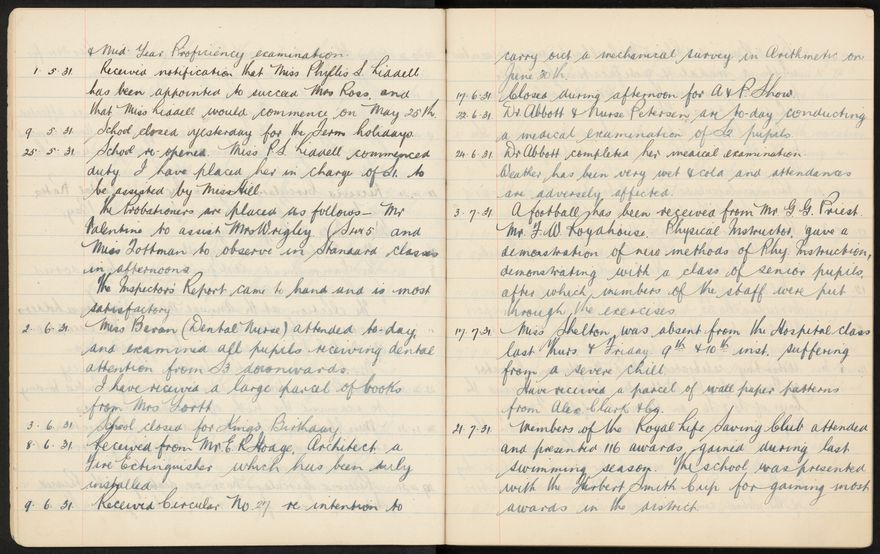 & Mid-Year Proficiency examination.
1. 5. 31. Received notification that Miss Phyllis S. Liddell
has been appointed to succeed Mrs Ross, and
that Miss Liddell would commence on May 25th.
9. 5. 31 School closed yesterday for the Term holidays.
25. 5. 31 School re-opened. Miss P. S. Liddell commenced
duty. I have placed her in charge of S1. to
be assisted by Miss Hill.
The Probationers are placed as follows - Mr
Valentine to assist Mrs Wrigley and
Miss Tottman to observe in Standard classes
in afternoons
The Inspector's Report came to hand and is most
satisfactory
2. 6. 31. Miss Bevan (Dental Nurse) attended to-day,
and examined all pupils receiving dental
attention from S3 downwards.
I have received a large parcel of books
from Mrs
3. 6. 31 School closed for King's Birthday
8. 6. 31. Received from Mr E. R. Hoage, Architect a
Fire Extinguisher which has been duly
installed
9. 6. 31. Received Circular No. 27 re intention to
carry out a mechanical survey in Arithmetic on
June 30th.
17. 6. 31 Closed during afternoon for A & P. Show.
22. 6. 31 Dr Abbott & Nurse Petersen, are to-day conducting
a medical examination of S2 pupils.
24. 6. 31. Dr Abbott completed her medical examination
Weather has been very wet & cold and attendances
are adversely affected.
3. 7. 31. A football has been received from Mr. G. G. Priest.
Mr. F. W. Royahouse, Physical Instructor, gave a
demonstration of new methods of Phy. Instruction,
demonstrating with a class of senior pupils,
after which, members of the staff were put
through the exercises.
17. 7. 31 Miss Shelton, was absent from the Hospital class
last Thurs & Friday 9th & 10th inst. suffering
from a severe chill
Have received a parcel of wall paper patterns
from Alex Clark & Co.
21. 7. 31. Members of the Royal Life Saving Club attended
and presented 116 awards gained during last
swimming season. The school was presented
with the Herbert Smith Cup for gaining most
awards in the district